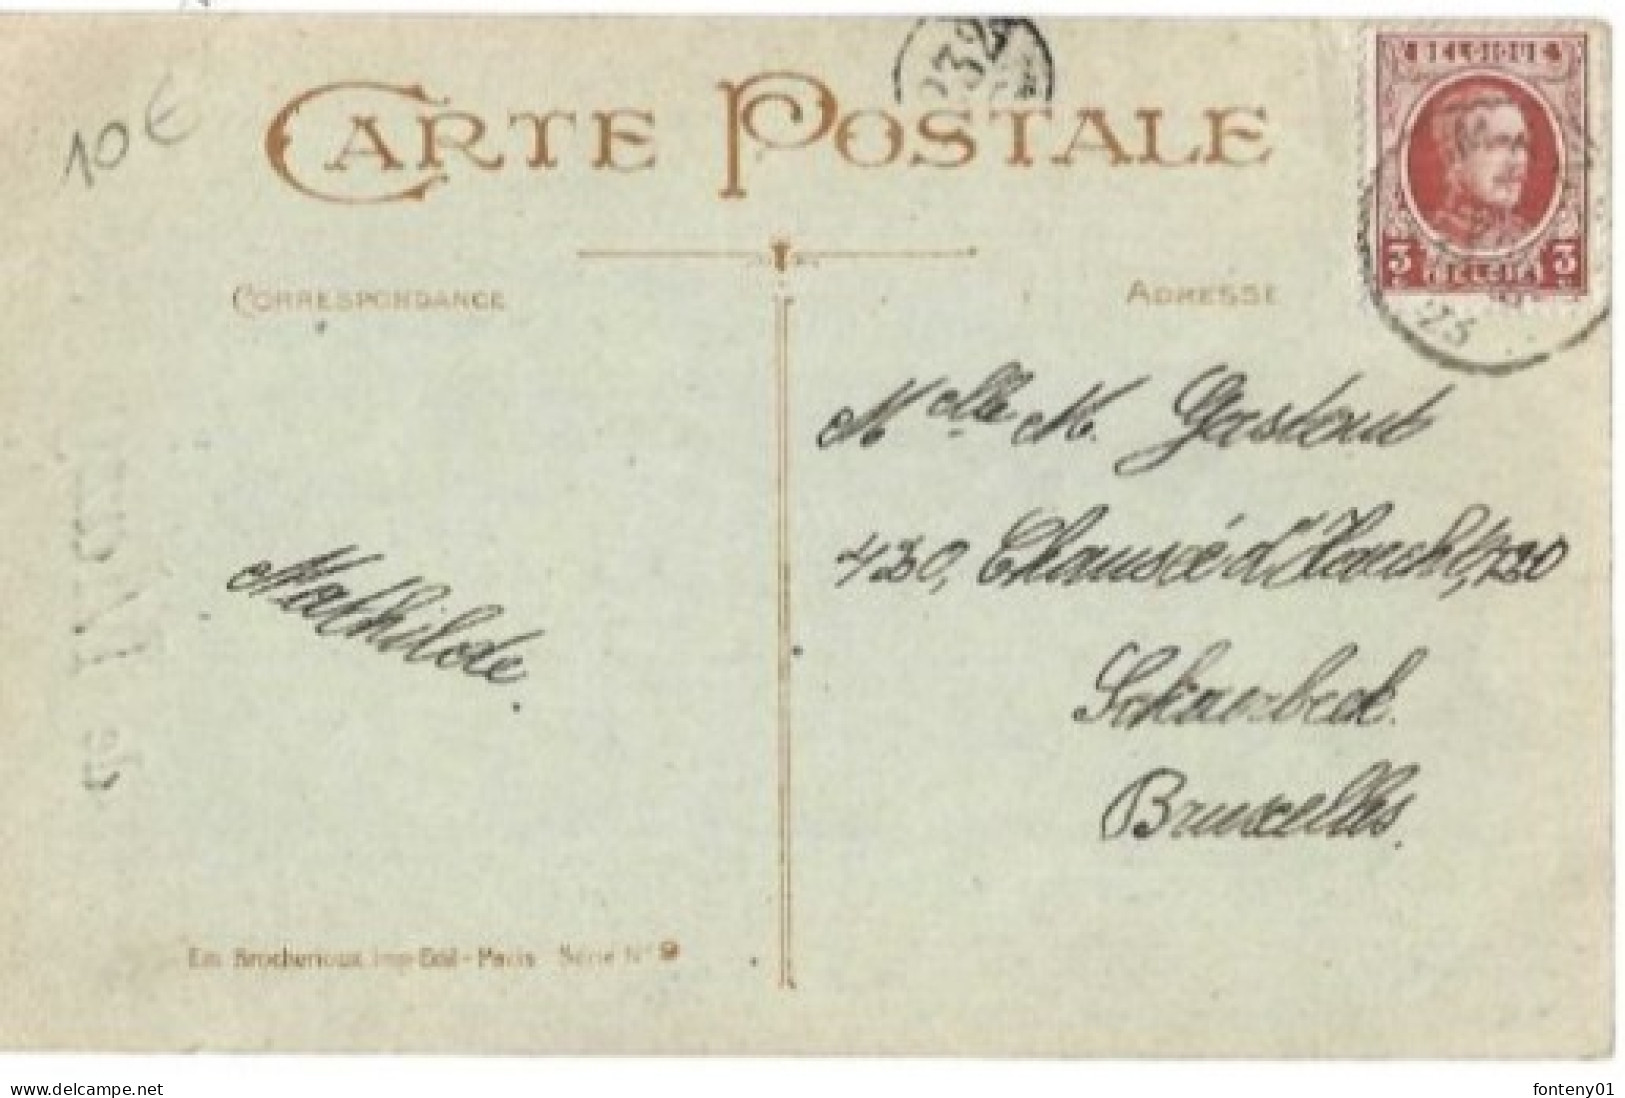 10 €
CARTE POSTALE
232
BELGIQUE
3 BELGIË 3
23
CORRESPONDANCE
ADRESSE
Melle M. Gastout
430, Chaussée d'Haecht, 430
Schaerbeek.
Bruxelles.
Mathilde.
Em. Brocherioux, Imp-Edit-Paris Série N° 9
www.delcampe.net
fonteny01